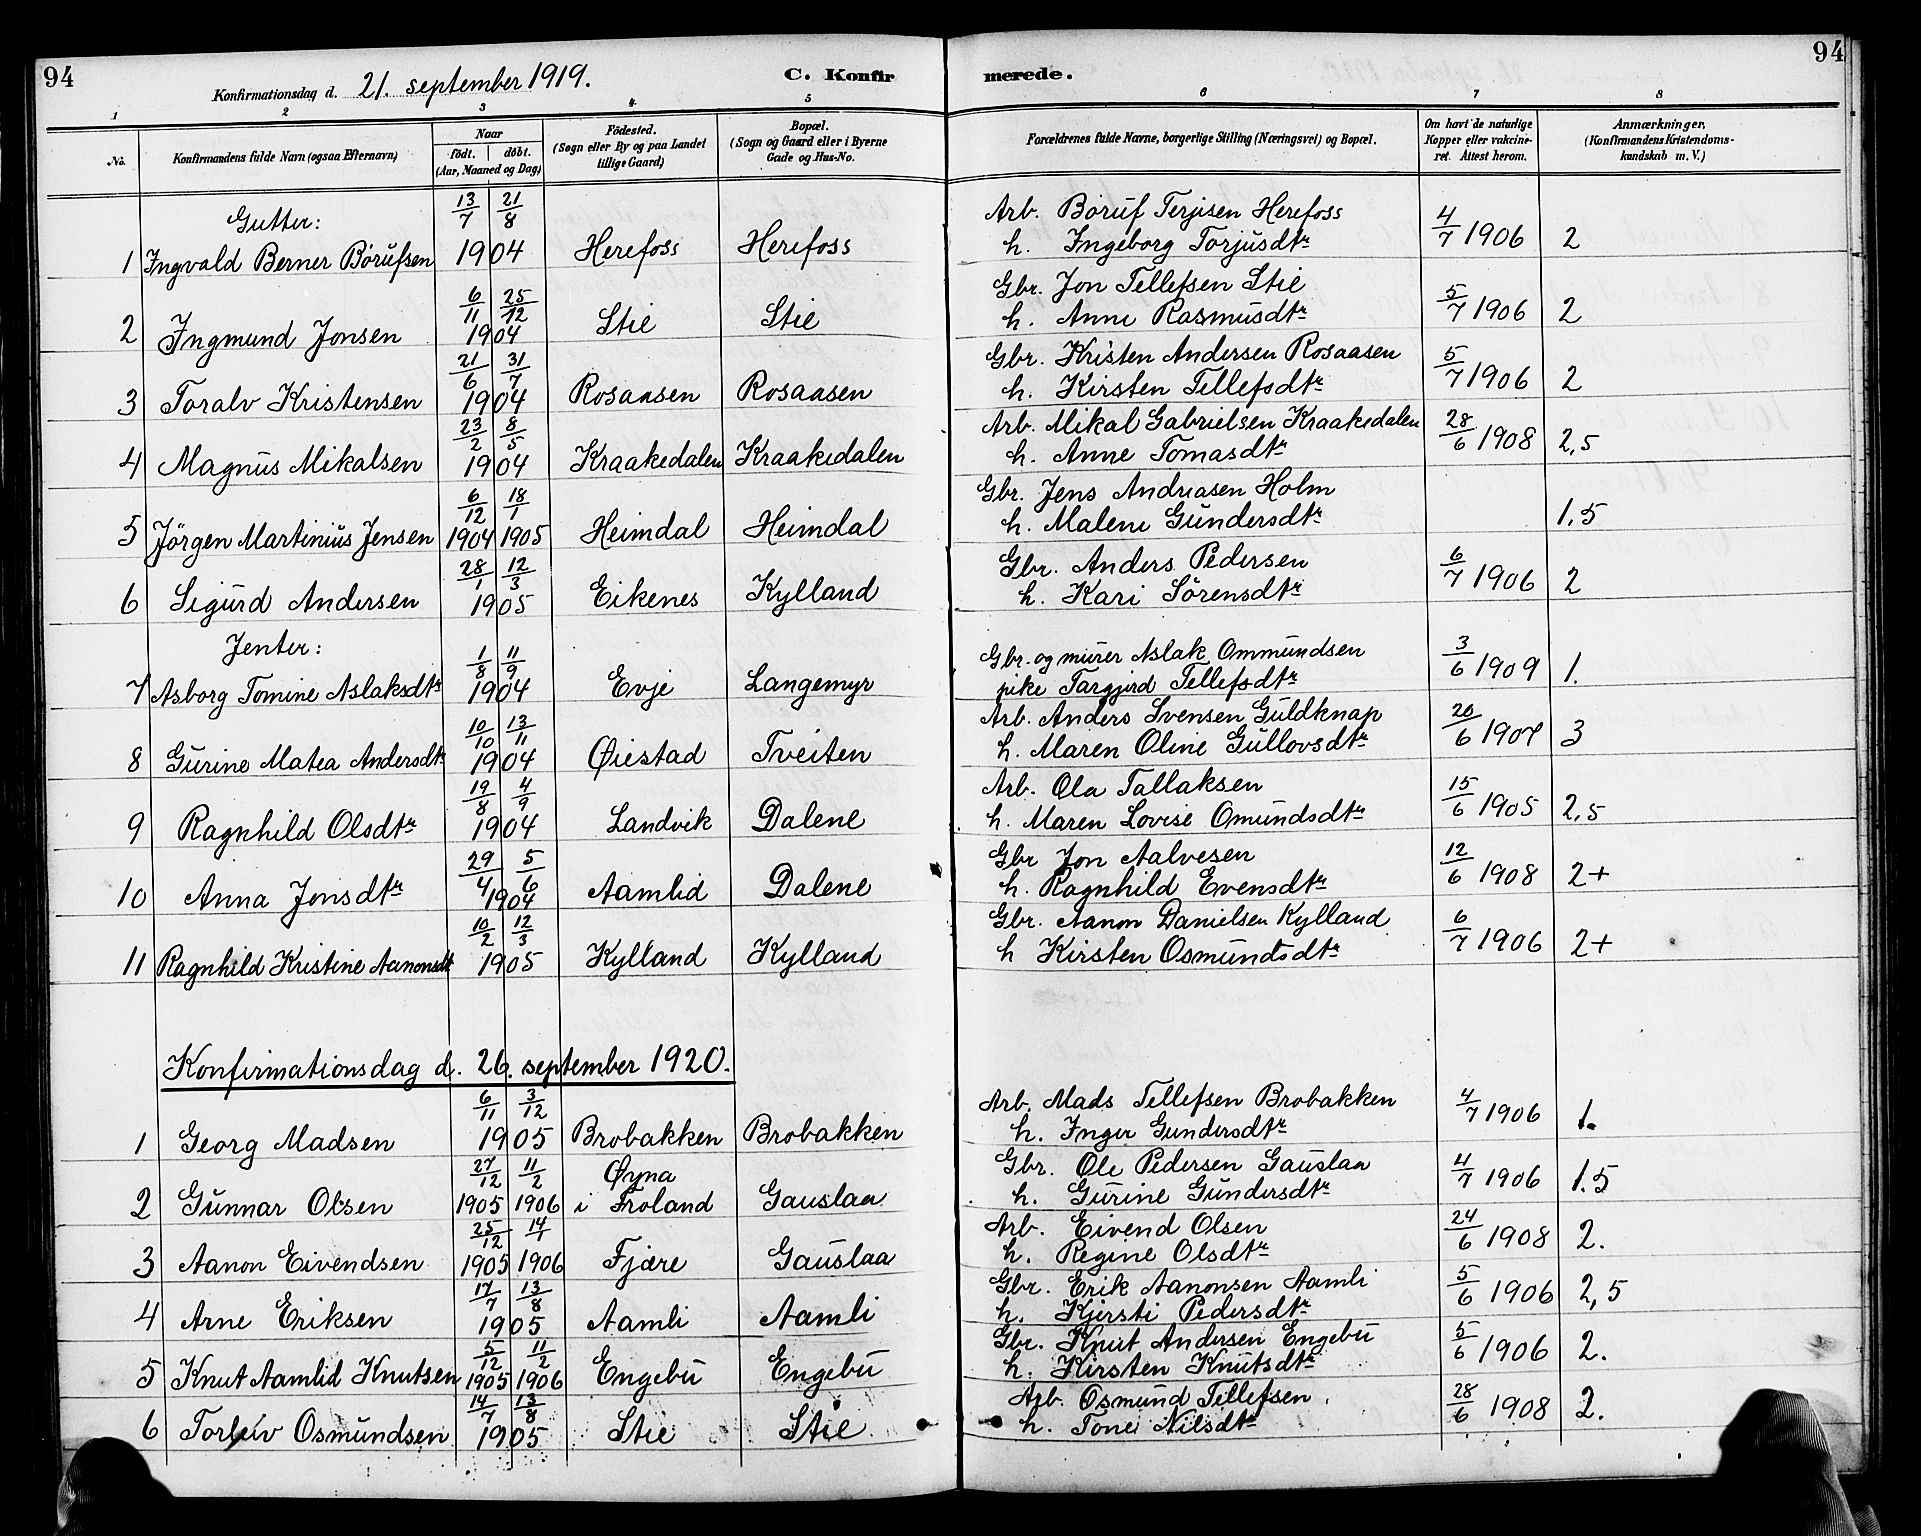 94
Konfirmationsdag d. 21. september 1919.
C. Konfirmerede.
94
1 2 3 4 5 6 7 8
No.
Konfirmandens fulde Navn (ogsaa Efternavn)
Naar
födt. | döbt.
(Aar, Maaned og Dag)
Födested.
(Sogn eller By og paa Landet
tillige Gaard)
Bopæl.
(Sogn og Gaard eller i Byerne
Gade og Hus-No.
Forældrenes fulde Navne, borgerlige Stilling (Næringsvei) og Bopæl.
Om havt de naturlige
Kopper eller vakcine-
ret. Attest herom.
Anmærkninger,
(Konfirmandens Kristendoms-
kundskab m. V.)
Gutter: 13/7 21/8 Arb. Børuf Terjisen Herefoss
1 Ingvald Berner Børufsen 1904 Herefoss Herefoss h. Ingeborg Torjusdtr 4/7 1906 2
6/11 25/12 Gbr. Jon Tellefsen Stie
2 Ingmund Jonsen 1904 Stie Stie h. Anne Rasmusdtr 5/7 1906 2
21/6 31/7 Gbr. Kristen Andersen Rosaasen
3 Toralv Kristensen 1904 Rosaasen Rosaasen h. Kirsten Tellefsdtr 5/7 1906 2
23/2 8/5 Arb. Mikal Gabrielsen Kraakedalen
4 Magnus Mikalsen 1904 Kraakedalen Kraakedalen h. Anne Tomasdtr 28/6 1908 2,5
6/12 18/1 Gbr. Jens Andreasen Holm
5 Jörgen Martinius Jensen 1904 1905 Heimdal Heimdal h. Malene Gundersdtr 1,5
28/1 12/3 Gbr. Anders Pedersen
6 Sigurd Andersen 1905 Eikenes Kylland h. Kari Sörensdtr 6/7 1906 2
Jenter: 1/8 11/9 Gbr. og murer Aslak Ommundsen
7 Asborg Tomine Aslaksdtr 1904 Evje Langemyr pike Targjerd Tellefsdtr 3/6 1909 1.
10/10 13/11 Arb. Anders Svensen Guldknap
8 Gurine Matea Andersdtr 1904 Øiestad Tveiten h. Maren Oline Gullovsdtr 20/6 3
19/8 4/9 Arb. Ola Tallaksen
9 Ragnhild Olsdtr 1904 Landvik Dalene h. Maren Lovise Omundsdtr 15/6 1905 2,5
29/4 5/6 Gbr Jon Aalvesen
10 Anna Jonsdtr 1904 Aamlid Dalene h. Ragnhild Evensdtr 12/6 1908 2+
10/2 12/3 Gbr. Aanon Danielsen Kylland
11 Ragnhild Kristine Aanonsdt 1905 Kylland Kylland h Kirsten Osmundsdtr 6/7 1906 2+
Konfirmationsdag d. 26. september 1920.
6/11 3/12 Arb. Mads Tellefsen Brobakken
1 Georg Madsen 1905 Brobakken Brobakken h. Inger Gundersdtr 4/7 1906 1.
27/12 11/2 Øyna Gbr. Ole Pedersen Gauslaa
2 Gunnar Olsen 1905 1906 i Froland Gauslaa h. Gurine Gundersdtr 4/7 1906 1.5
25/12 14/1 Arb. Eivend Olsen
3 Aanon Eivendsen 1905 1906 Fjære Gauslaa h. Regine Olsdtr 24/6 1908 2.
17/7 13/8 Gbr. Erik Aanonsen Aamli
4 Arne Eriksen 1905 Aamli Aamli h. Kjersti Pedersdtr 5/6 1906 2,5
5/12 11/2 Gbr. Knut Andersen Engebu
5 Knut Aamlid Knutsen 1905 1906 Engebu Engebu h. Kirsten Knutsdtr 5/6 1906 2.
14/7 13/8 Arb. Osmund Tellefsen
6 Torleiv Osmundsen 1905 Stie Stie h. Tone Nilsdtr 28/6 1908 2.